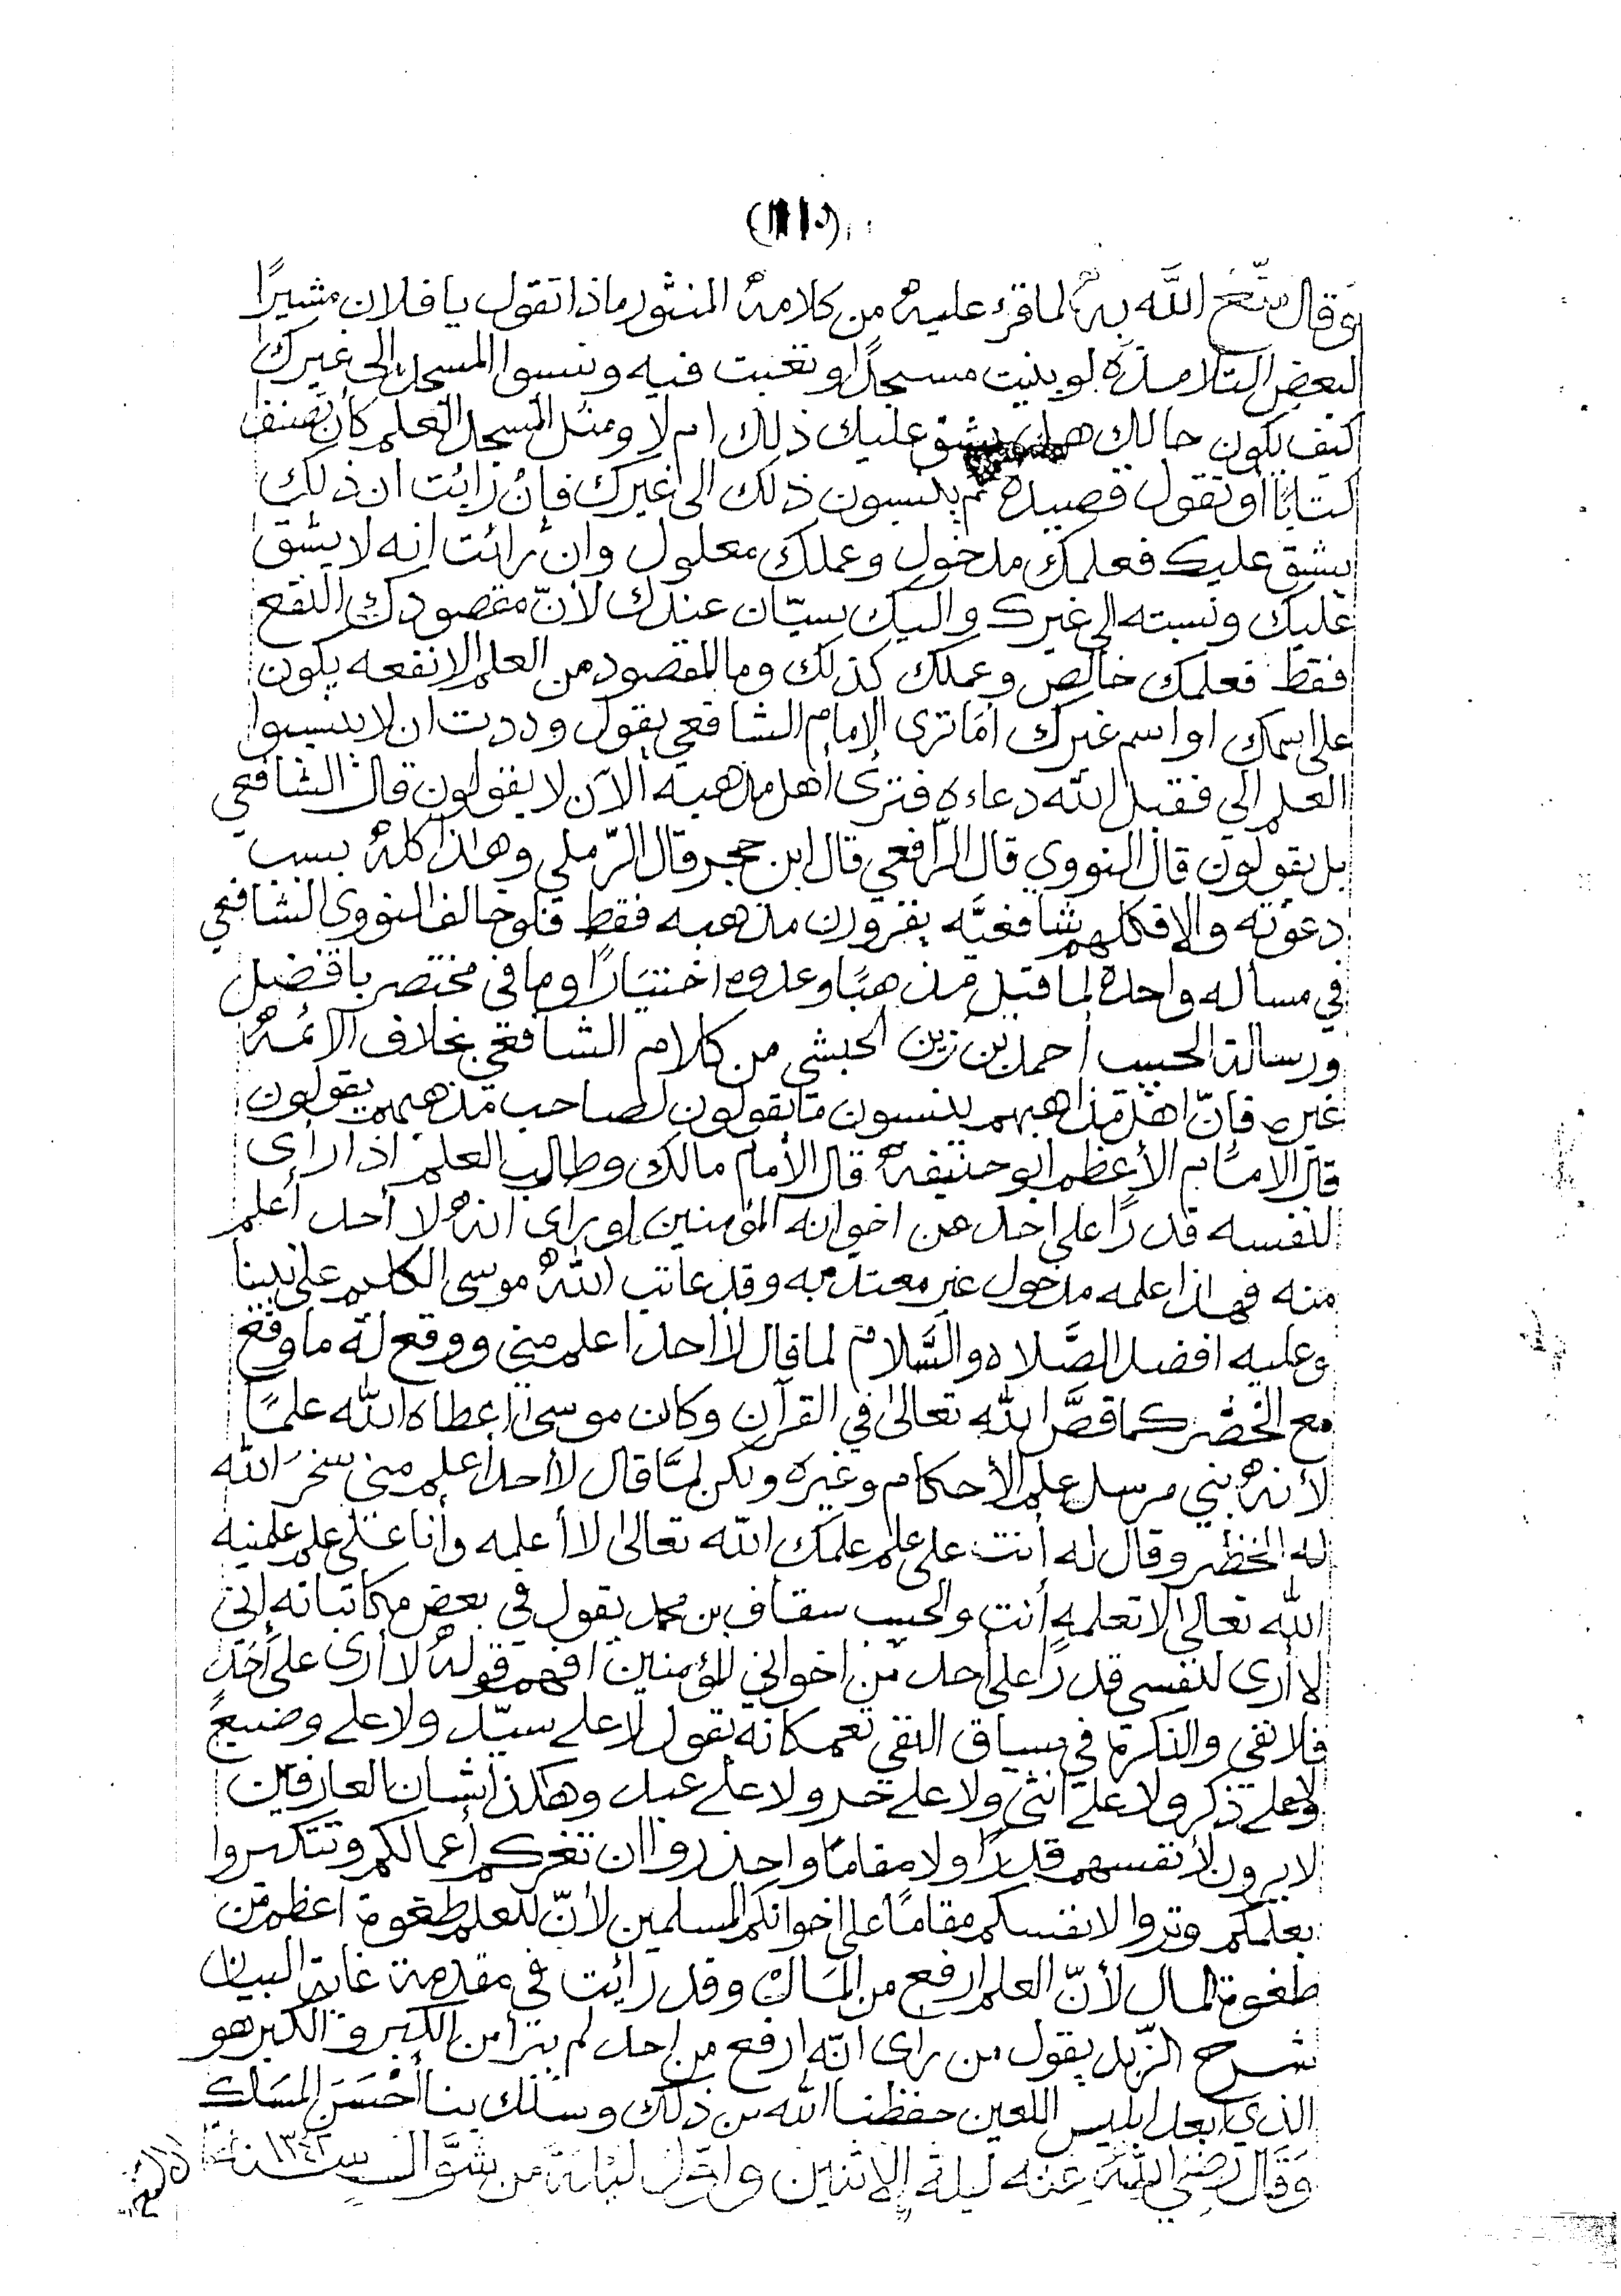 وقال متّع الله به لما قرء عليه من كلامه المنثور ماذا تقول يا فلان مشيرًا
لبعض التلامذه لو بنيت مسجدًا وتعبت فيه ونسبوا المسجد إلى غيرك
كيف يكون حالك هل يشق عليك ذلك ام لا ومثل المسجد العلم كأن تصنف
كتابًا أو تقول قصيده ثم ينسبون ذلك الى غيرك فإن رائت ان ذلك
يشق عليك فعلمك مدخول وعملك معلول وان رائت انه لا يشق
عليك ونسبته الى غيرك واليك سيّان عندك لأنّ مقصودك النفع
فقط فعلمك خالص وعملك كذلك وما المقصود من العلم الا نفعه يكون
على اسمك او اسم غيرك أما ترى الإمام الشافعي يقول وددت ان لا ينسبوا
العلم الي فقبل الله دعاءه فترى أهل مذهبه ألآن لا يقولون قال الشافعي
بل يقولون قال النووي قال الرّافعي قال ابن حجر قال الرّملي وهذا كله بسبب
دعوته والا فكلهم شافعيَّه يقررون مذهبه فقط فلو خالف النووي الشافعي
في مسأله واحده لما قبل مذهبًا وعدوه اختيارًا وما في مختصر بافضل
ورسالة الحبيب أحمد بن زين الحبشي من كلام الشافعي بخلاف الائمه
غيره فإنّ اهل مذاهبهم ينسبون ما يقولون لصاحب مذهبهم يقولون
قال الامام الأعظم ابو حنيفه قال الأمام مالك وطالب العلم اذا رأى
لنفسه قدرًا على احد من اخوانه المؤمنين او راى انه لا أحد أعلم
منه فهذا علمه مدخول غير معتد به وقد عاتب الله موسى الكليم على نبينا
وعليه افضل الصَّلاه والسَّلام لما قال لا احد اعلم مني ووقع له ما وقع
مع الخضر كما قصَّ الله تعالى في القرآن وكان موسى اعطاه الله علمًا
لأنه نبي مرسل علم الأحكام وغيره ولكن لمَّا قال لا أحد أعلم مني سخر الله
له الخظر وقال له أنت على علم علمك الله تعالى لا أعلمه وأنا على علم علمنيه
الله تعالى لا تعلمه أنت والحبيب سقاف بن محمد يقول في بعض مكاتباته إني
لا أرى لنفسي قدرًا على أحد من اخواني المؤمنين افهم قوله لا أرى على أحد
فلا نفي والنكرة في سياق النفي تعم كانه يقول لا على سيّد ولا على وضيع
ولا على ذكر ولا على انثى ولا على حر ولا على عبد وهكذا شان العارفين
لا يرون لأنفسهم قدرًا ولا مقامًا واحذروا ان تغركم أعمالكم وتتكبروا
بعلمكم وتروا لانفسكم مقامًا على اخوانكم المسلمين لأنّ للعلم طغوة اعظم من
طغوة المال لأنّ العلم ارفع من المال وقد رائت في مقدمة غاية البيان
شرح الزّبد يقول من راى انّه ارفع من احد لم يبرا من الكبر والكبر هو
الذي أبعد ابليس اللعين حفظنا الله من ذلك وسلك بنا أحْسَن المسلك
وَقَال رضي الله عنه ليلة الاثنين واول ليلة من شوّال سنة ١٣٤٢